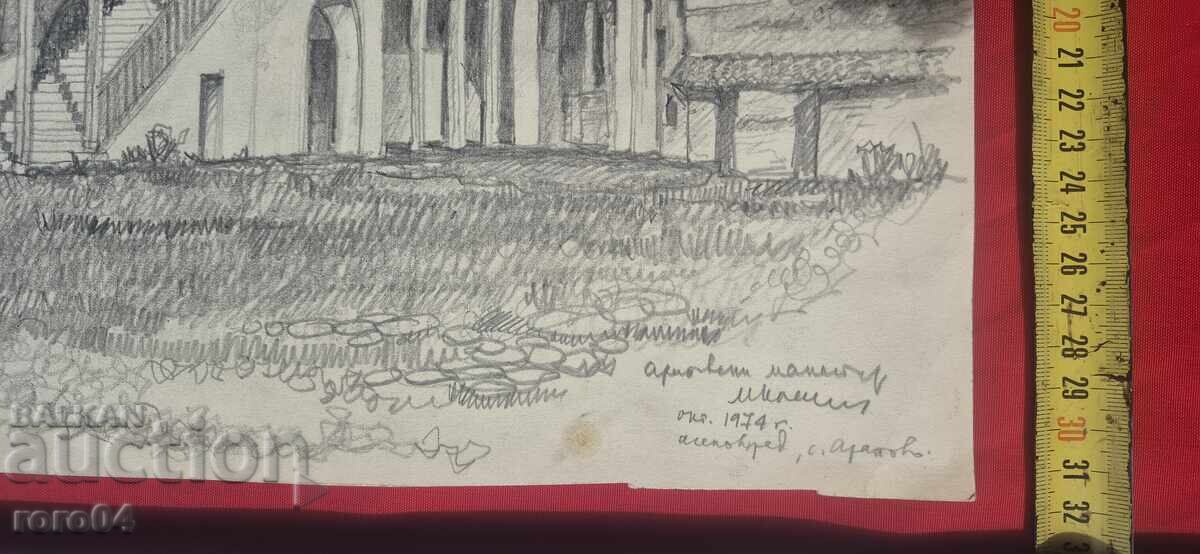 20
21
22
23
24
25
26
27
28
29
30
31
32
манастир
окт. 1974 г.
Асеновград, с. Арапово.
BALKAN
auction
roro04